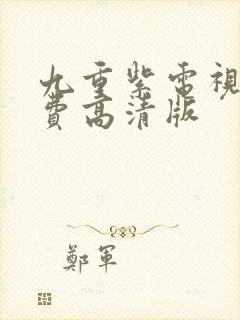 九重紫電視
費高清版
鄭軍